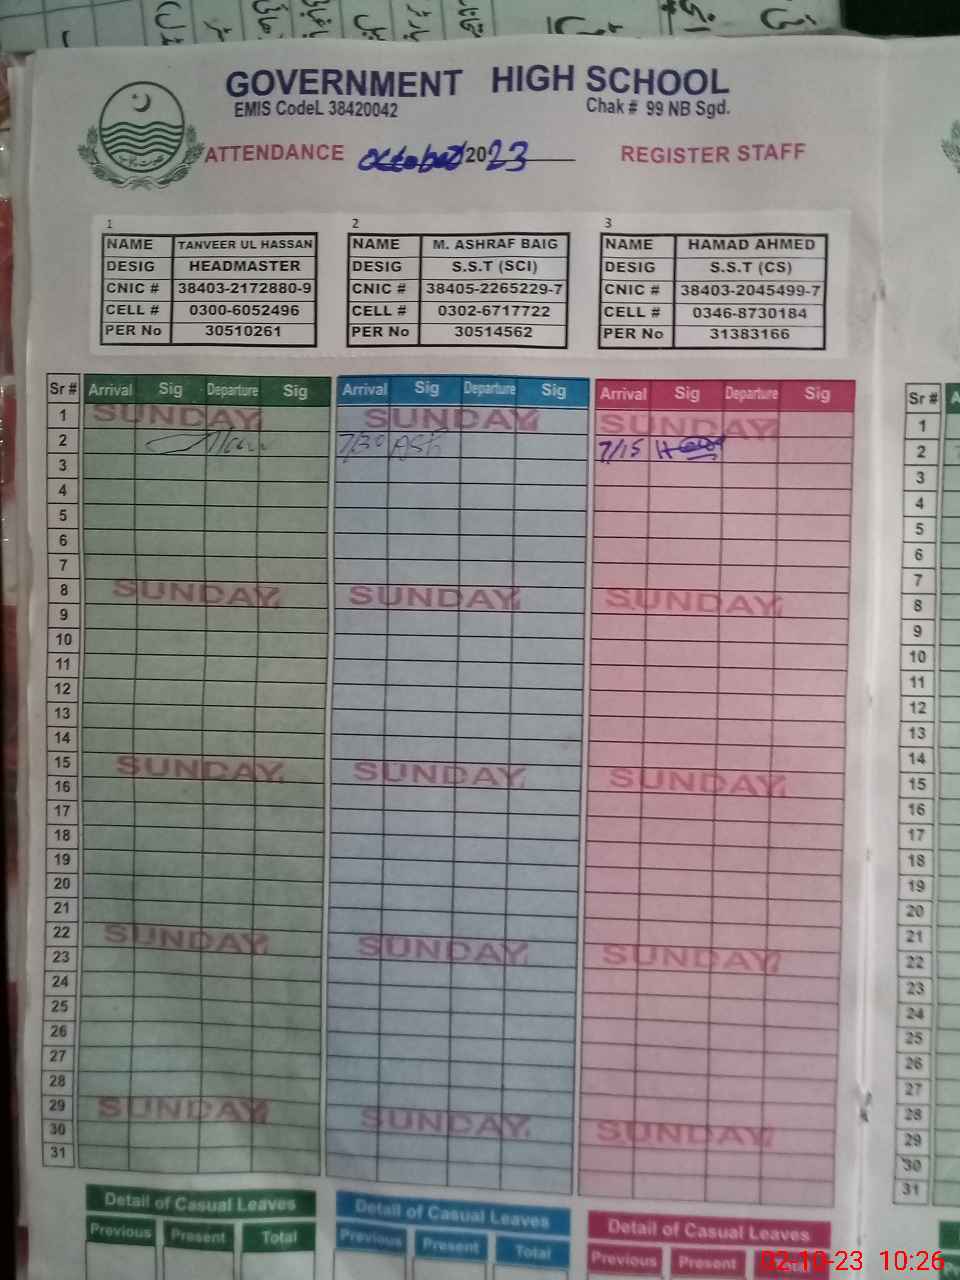 GOVERNMENT HIGH SCHOOL
EMIS CodeL 38420042 Chak # 99 NB Sgd.
ATTENDANCE October 2023 REGISTER STAFF
1
NAME TANVEER UL HASSAN
DESIG HEADMASTER
CNIC # 38403-2172880-9
CELL # 0300-6052496
PER No 30510261
2
NAME M. ASHRAF BAIG
DESIG S.S.T (SCI)
CNIC # 38405-2265229-7
CELL # 0302-6717722
PER No 30514562
3
NAME HAMAD AHMED
DESIG S.S.T (CS)
CNIC # 38403-2045499-7
CELL # 0346-8730184
PER No 31383166
Sr # Arrival Sig Departure Sig Arrival Sig Departure Sig Arrival Sig Departure Sig Sr #
1 SUNDAY SUNDAY SUNDAY 1
2 7/30 7/15 2
3 3
4 4
5 5
6 6
7 7
8 SUNDAY SUNDAY SUNDAY 8
9 9
10 10
11 11
12 12
13 13
14 14
15 SUNDAY SUNDAY SUNDAY 15
16 16
17 17
18 18
19 19
20 20
21 21
22 SUNDAY SUNDAY SUNDAY 22
23 23
24 24
25 25
26 26
27 27
28 28
29 SUNDAY SUNDAY SUNDAY 29
30 30
31 31
Detail of Casual Leaves Detail of Casual Leaves Detail of Casual Leaves
Previous Present Total Previous Present Total Previous Present
02-10-23 10:26